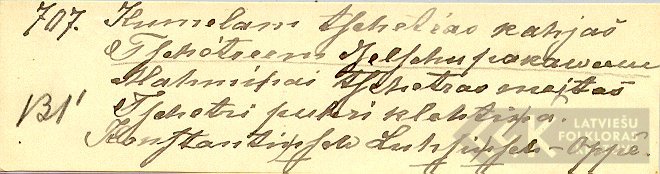 707. Kumelam tschetras kahjas
Tschetreem zelschu pakaweem
Mahmiņai tschetras meitas
B1' Tschetri puhri klehtiņa.
Konstantinsch Luhsinsch - Oppe.
LATVIEŠU
FOLKLORAS